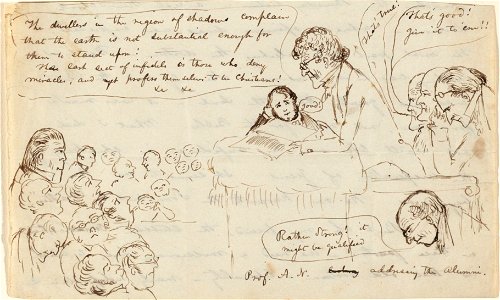 The dwellers in the region of shadows complain
that the earth is not substantial enough for
them to stand upon!
The last sect of infidels is those who deny
miracles, and yet profess themselves to be Christians!
&c &c
That's true!
Thats good!
Give it to em!!
Good!
Rather Strong! it
might be qualified
Prof. A. N. addressing the Alumni.